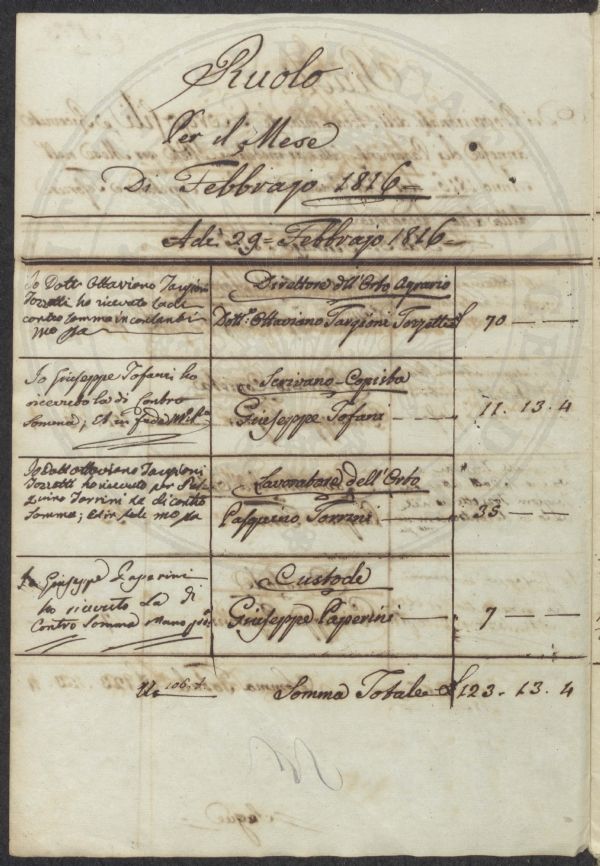 Ruolo
Per il Mese
Di Febbrajo 1816
Adì 29 = Febbrajo 1816
Io Dott Ottaviano Targioni
Tozzetti ho ricevuto la di
contro somma in contanti
mo pa
Direttore dell'Orto Agrario
Dott: Ottaviano Targioni Tozzetti £ 70 — —
Io Giuseppe Tofani ho
ricevuto la di Contro
Somma; Et in fede Mo Pa
Scrivano Copista
Giuseppe Tofani 11. 13. 4
Io Dott Ottaviano Targioni
Tozzetti ho ricevuto per Pas
quino Torrini la di contro
somma; Et in fede mo pa
Lavoratore dell'Orto
Pasquino Torrini 35 — —
Io Giuseppe Paperini
ho ricevuto La di
Contro Somma Mano
Custode
Giuseppe Paperini 7 — —
106
Somma Totale £ 123. 13. 4